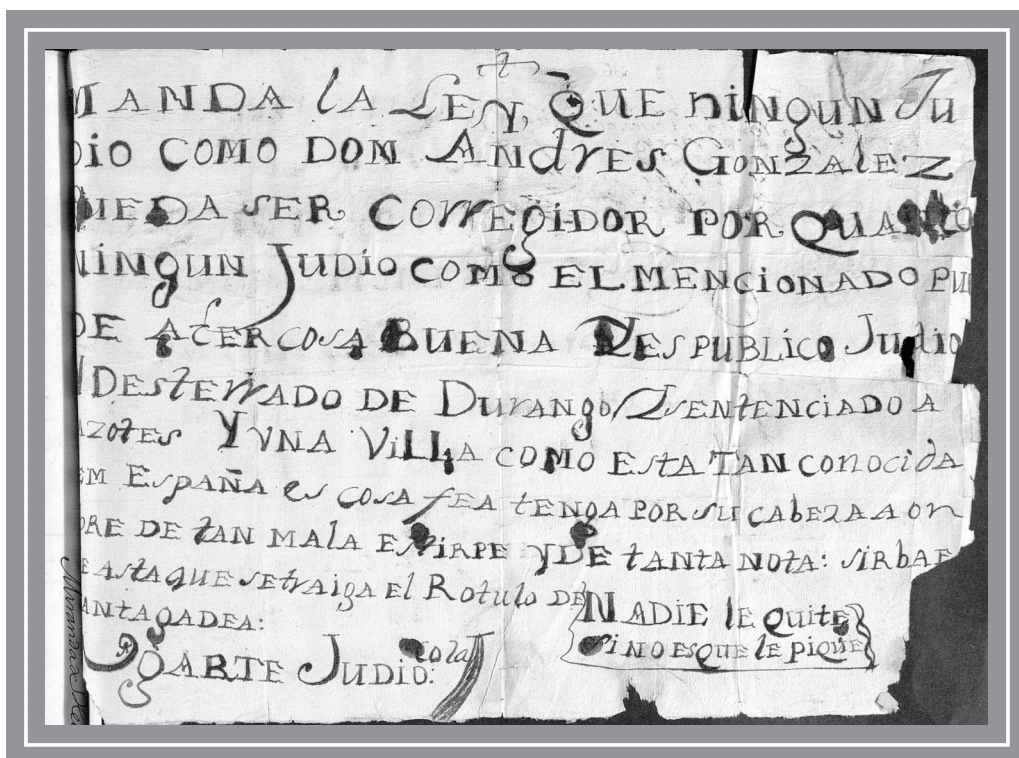 MANDA la LEY, QUE ninguN Ju
Dio COMO DON ANdrES GONZAlEZ
PUEDA SER CorrEgiDOR POR QUANtO
NINgUN JuDio COMO EL MENCIONADO PU
DE AcER COSA BUENA Y ES PUBLICO Judio
DESterrADO DE Durango, Y SENtENCIADO A
AZOtES Y VNA VillA COMO EStA TAN conocida
EM EspAñA es cosA fEA tENgA POR SU CAbEZA A On
bRE DE tAN MAlA EStiRPE Y DE tANtA NOtA: SiRbAE
EAStA QUE SE trAigA El Rotulo DE
SANtAgADEA:
NADIE lE quitE
SiNO ES QUE lE piquE
UgARTE JUDIO: Cola